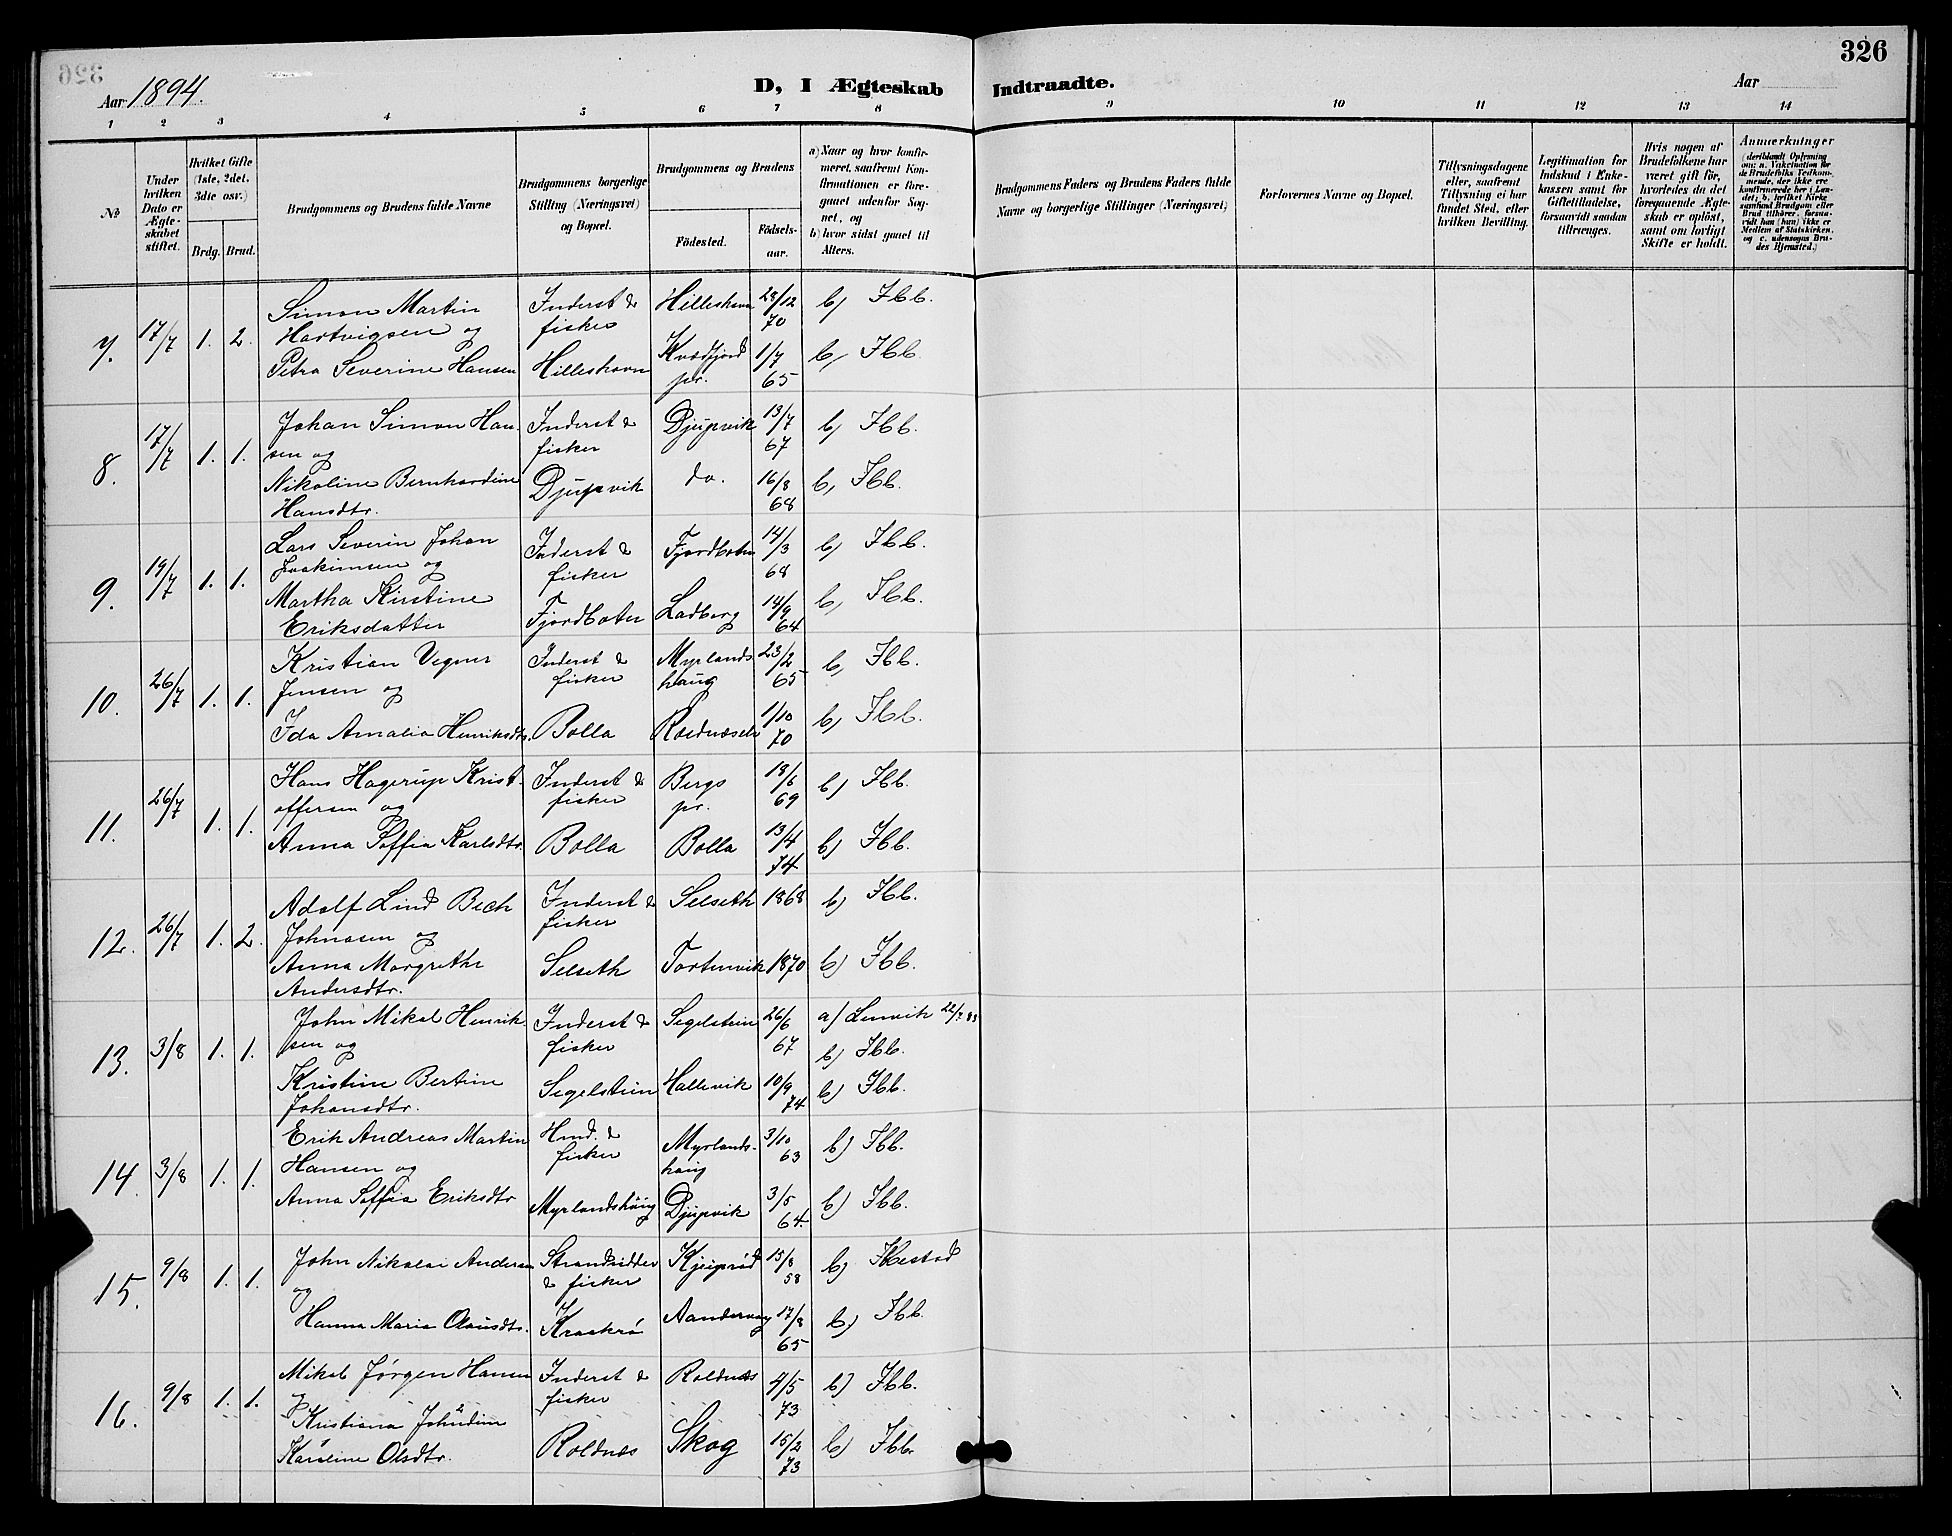 326
Aar 1894.
D, I Ægteskab Indtraadte.
Aar
1 2 3 4 5 6 7 8 9 10 11 12 13 14
№
Under hvilken Dato er Ægteskabet stiftet.
Hvilket Gifte (1ste, 2det, 3die osv.)
Brdg. Brud.
Brudgommens og Brudens fulde Navne
Brudgommens borgerlige Stilling (Næringsvei) og Bopæl.
Brudgommens og Brudens
Fødested.
Fødselsaar.
a) Naar og hvor konfirmeret, saafremt Konfirmationen er foregaaet udenfor Sognet, og
b) hvor sidst gaaet til Alters.
Brudgommens Faders og Brudens Faders fulde Navne og borgerlige Stillinger (Næringsvei)
Forlovernes Navne og Bopæl.
Tillysningsdagene eller, saafremt Tillysning ei har fundet Sted, efter hvilken Bevilling.
Legitimation for Indskud i Enkekassen samt for Giftetilladelse, forsaavidt saadan tiltrænges.
Hvis nogen af Brudefolkene har været gift før, hvorledes da det foregaaende Ægteskab er opløst, samt om lovligt Skifte er holdt.
Anmærkninger
7. 17/7 1. 2. Simon Martin Inderst & Hilleshavn 28/12 70 b) Ibb.
Hartvigsen og fisker
Petra Severine Hansen Hilleshavn Kvædfjord pr. 1/7 65 b, Ibb.
8. 17/7 1. 1. Johan Simon Han- Inderst & Djupvik 13/7 67 b, Ibb.
sen og fisker
Nikoline Bernhardine Djupvik do. 16/8 68 b, Ibb.
Hansdtr.
9. 19/7 1. 1. Lars Severin Johan Inderst & Fjordboten 14/3 68 b, Ibb.
Joakimsen og fisker
Martha Kirstine Fjordboten Ladberg 14/9 64 b, Ibb.
Eriksdatter
10. 26/7 1. 1. Kristian Vegner Inderst & Myrlandshaug 23/2 65 b, Ibb.
Jensen og fisker
Ida Amalia Henriksdtr. Bolla 1/10 70 b, Ibb.
11. 26/7 1. 1. Hans Hagerup Krist- Inderst & Bergs pr. 18/6 69 b) Ibb.
offersen og fisker
Anna Soffia Karlsdtr. Bolla Bolla 13/4 74 b) Ibb.
12. 26/7 1. 2. Adolf Lind Bech Inderst & Selseth 1868 b) Ibb.
Johnasen og fisker
Anna Margrethe Selseth 1870 b) Ibb.
Andersdtr.
13. 3/8 1. 1. John Mikal Henrik- Inderst & Segelstein 26/6 67 a) Lenvik
sen og fisker b) Ibb.
Kristine Bertine Segelstein Hallevik 10/9 74 b) Ibb.
Johansdtr.
14. 3/8 1. 1. Erik Andreas Martin Hmd. & Myrlandshaug 3/10 63 b) Ibb.
Hansen og fisker
Anna Soffia Eriksdtr Myrlandshaug Djupvik 3/5 64. b) Ibb.
15. 9/8 1. 1. John Nikolai Andersen Strandsidder Kjeiprød 15/8 58 b) Ibestad
og & fisker
Hanna Maria Olausdtr. Kraakrø Aandervaag 17/8 65 b) Ibb.
16. 9/8 1. 1. Mikal Jørgen Hansen Inderst & Roldnæs 4/5 73 b) Ibb.
og fisker
Kristiana
Karoline Olsdtr. Roldnæs Skog 15/2 73 b) Ibb.